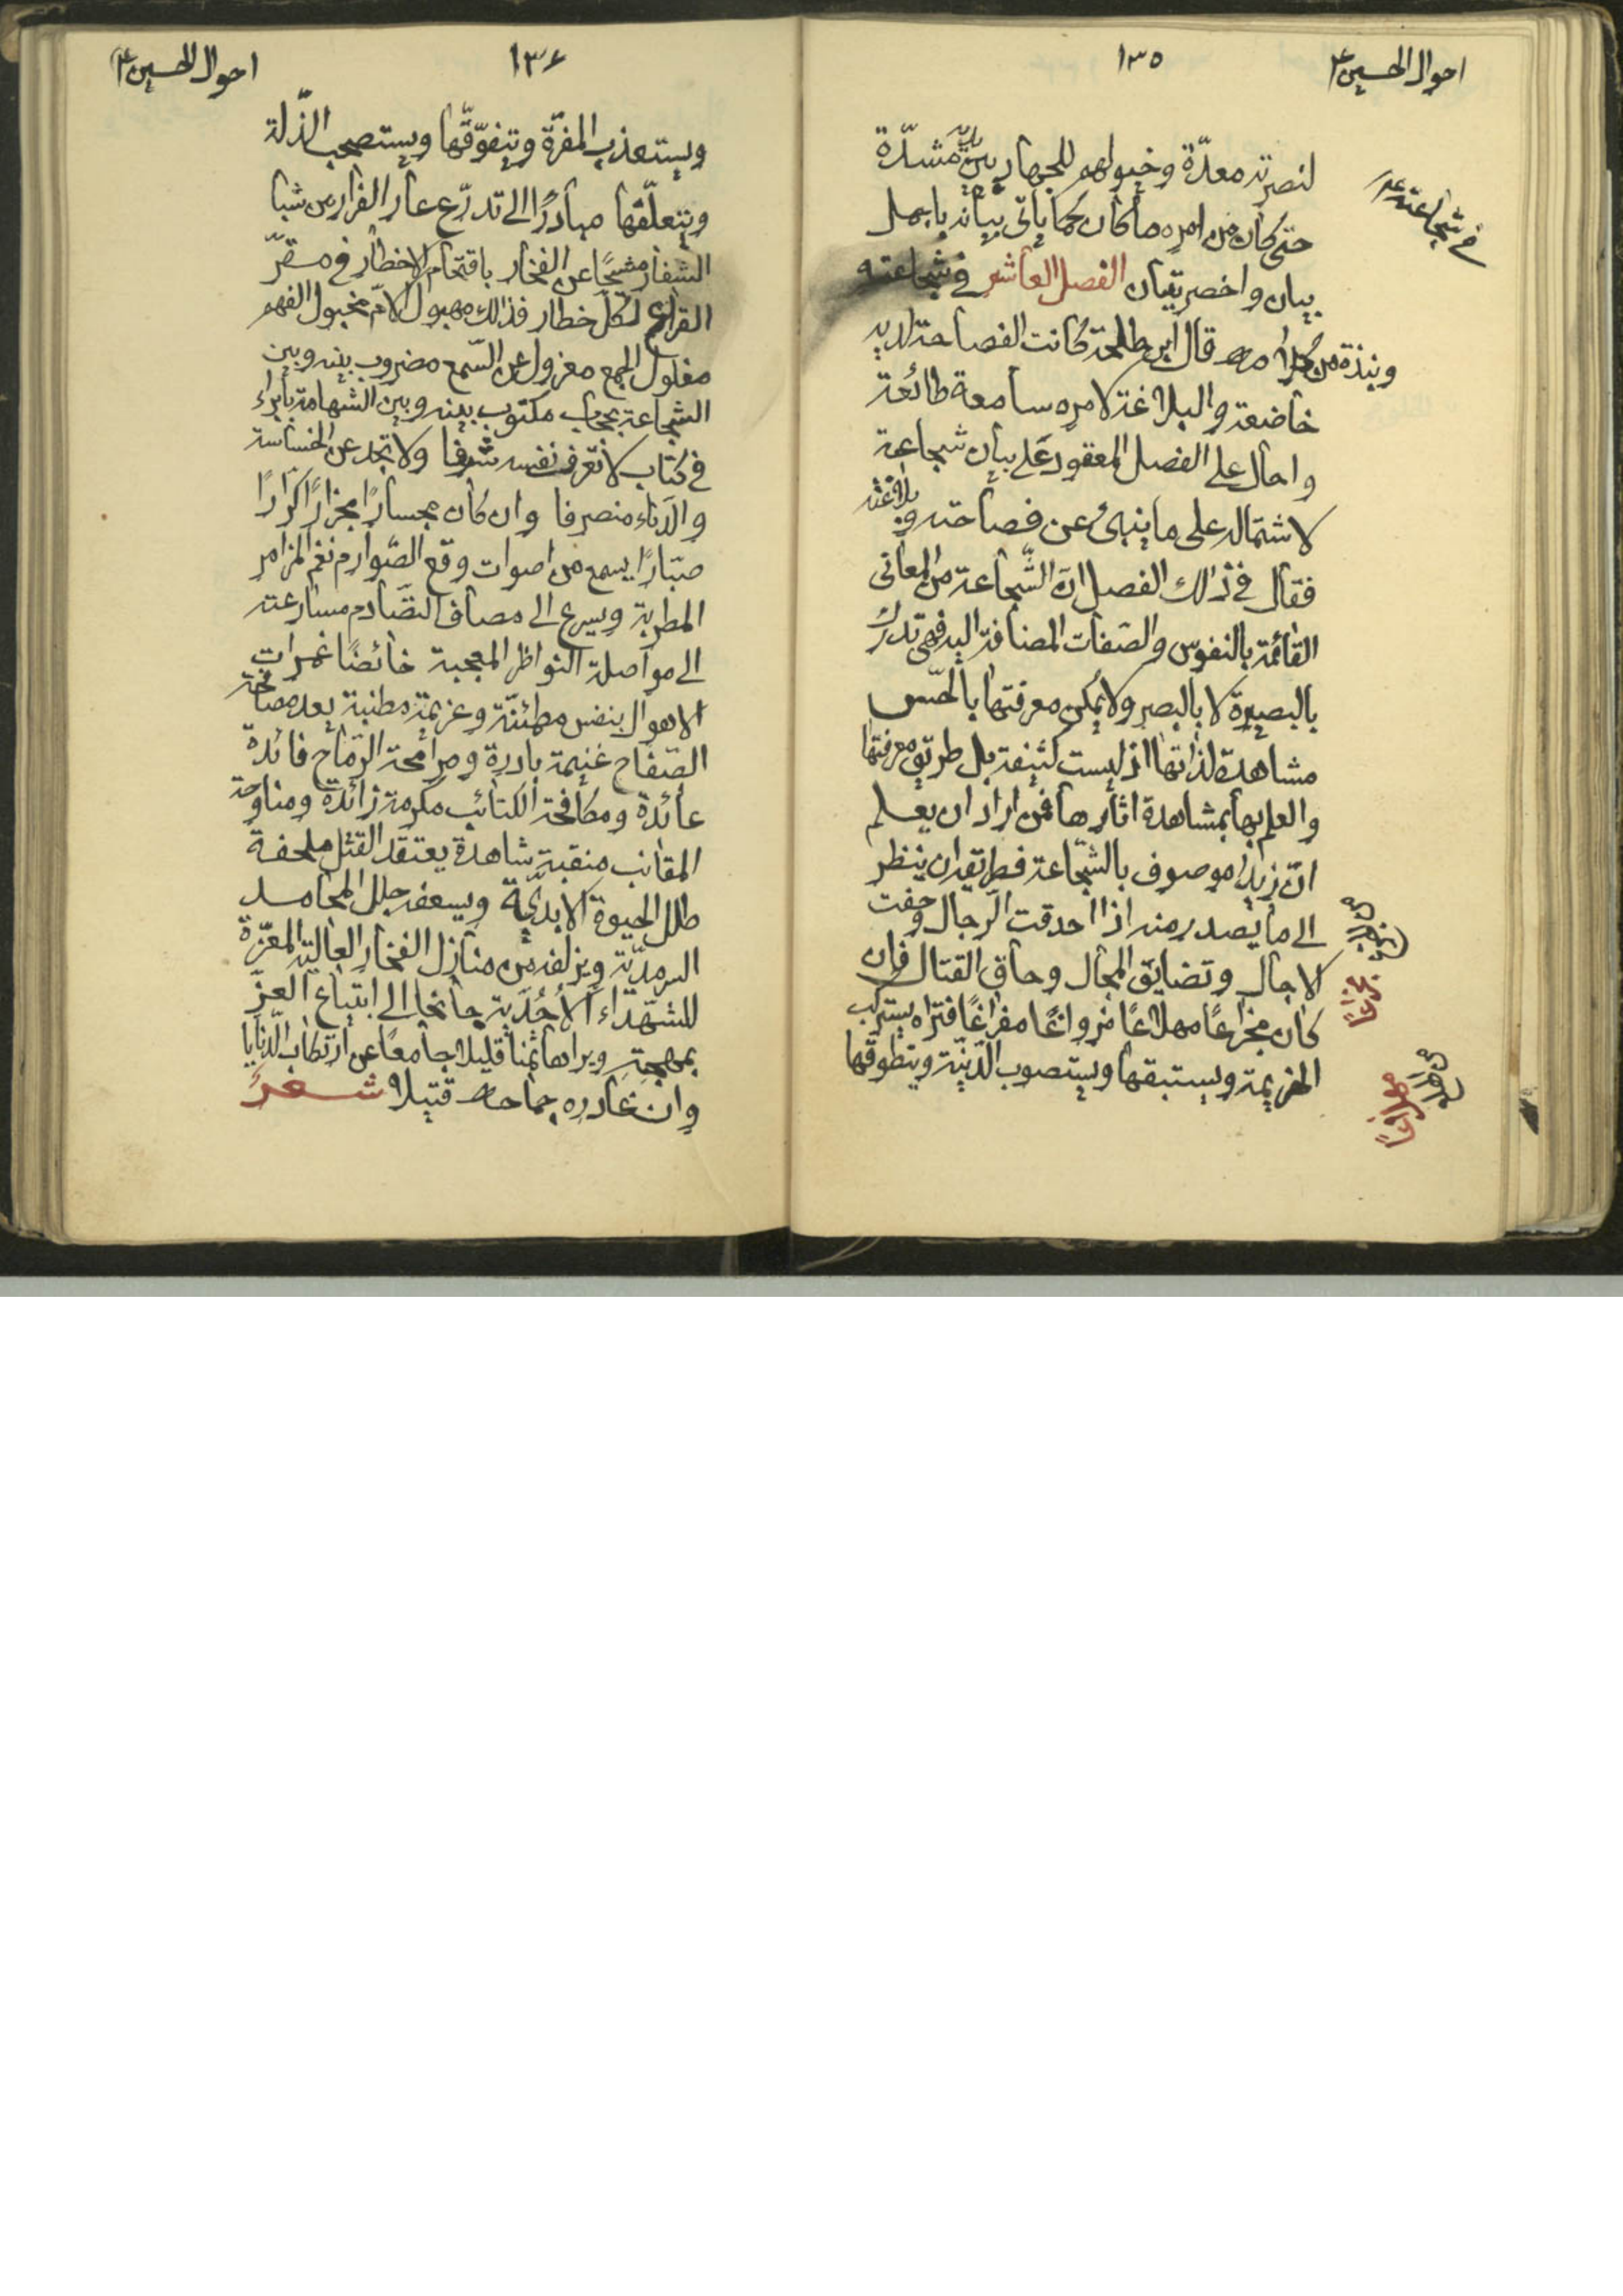 احوال الحسين ع
١٣٥
في شجاعته ع
لنصرته معدّة وخيولهم للجهاد بين يديه مشدّة
حتى كان من امره ما كان كما ياتى بيانه باجمل
بيان واخصر تبيان الفصل العاشر في شجاعته
ونبذة من كلامه قال ابن طلحة كانت الفصاحة لديه
خاضعة والبلاغة لامره سامعة طائعة
واحال على الفصل المعقود على بيان شجاعته
لاشتماله على ما ينبئ عن فصاحته وبلاغته
فقال في ذالك الفصل انّ الشّجاعة من المعانى
القائمة بالنفوس والصّفات المضافة اليه فهى تدرك
بالبصيرة لا بالبصر ولا يمكن معرفتها بالحسّ
مشاهدة لذاتها اذ ليست كثيفة بل طريق معرفتها
والعلم بها بمشاهدة اثارها فمن اراد ان يعلم
انّ زيدا موصوف بالشّجاعة فطريقه ان ينظر
الى ما يصدر منه اذا احدقت الرّجال وحفت
الاجال وتضايق المجال وحاق القتال فان
كان مجزاعًا مهلاعًا مزواغًا مفراغًا فتراه يستركب
الهزيمة ويستبقها ويستصوب الدّنيّة ويتطوقها
احوال الحسين ع
١٣٦
ويستعذب المفرّة ويتفوّقها ويستصحب الذّلة
ويتعلّقها مبادرًا الى تدرّع عار الفرار من شبا
الشفار مشيحًا عن الفخار باقتحام الاخطار في مقرّ
القراع لكلّ خطار فذالك مهبول الامّ مخبول الفهم
مفلول الجمع معزول عن السّمع مضروب بينه وبين
الشجاعة بحجاب مكتوب بينه وبين الشهامة بابراء
في كتاب لا تعرف نفسه شرفا ولا تجد عن الخساسة
والدّناءة منصرفا وان كان مجسارًا مجزارًا كرّارًا
صبّارًا يسمع من اصوات وقع الصّوارم نغم المزامر
المطربة ويسرع الى مصاف التصادم مسارعته
الى مواصلة النواظر المعجبة خائضًا غمرات
الاهوال بنفس مطمئنّة وعزيمة مطنبة يعد مصافحة
الصّفاح غنيمة باردة ومرامحة الرّماح فائدة
عائدة ومكافحة الكتائب مكرمة زائدة ومناوحة
المقانب منقبة شاهدة يعتقد القتل ملحفة
طلل الحيوة الابديّة ويسعفه حلل المحامد
السرمديّة ويزلفه من منازل الفخار العالية المعزّة
للشهّداء الاحُدّية جانحا الى ابتياع العزّ
بمهجته ويراها ثمنا قليلا جامعًا عن ارتكاب الدّنايا
وان غادره جماحه قتيلا شعر